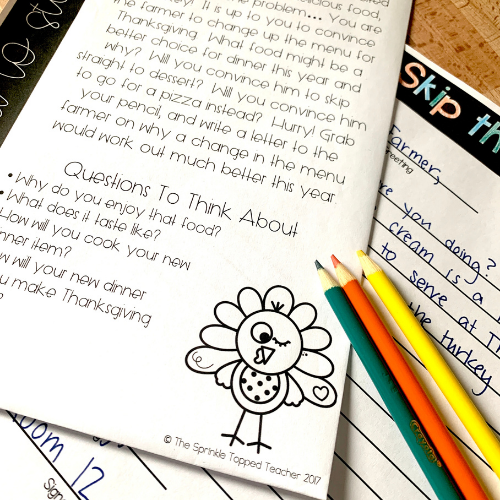 delicious food,
the problem... You are
the farmer to change up the menu for
Thanksgiving. What food might be a
better choice for dinner this year and
why? Will you convince him to skip
straight to dessert? Will you convince him
to go for a pizza instead? Hurry! Grab
your pencil, and write a letter to the
farmer on why a change in the menu
would work out much better this year.
Questions To Think About
• Why do you enjoy that food?
• What does it taste like?
How will you cook your new
nner item?
w will your new dinner
u make Thanksgiving
?
© The Sprinkle Topped Teacher 2017
Skip th
Farmer,
reeting
re you doing?
cream is a
to serve at Th
the turkey
oom 12
Sign